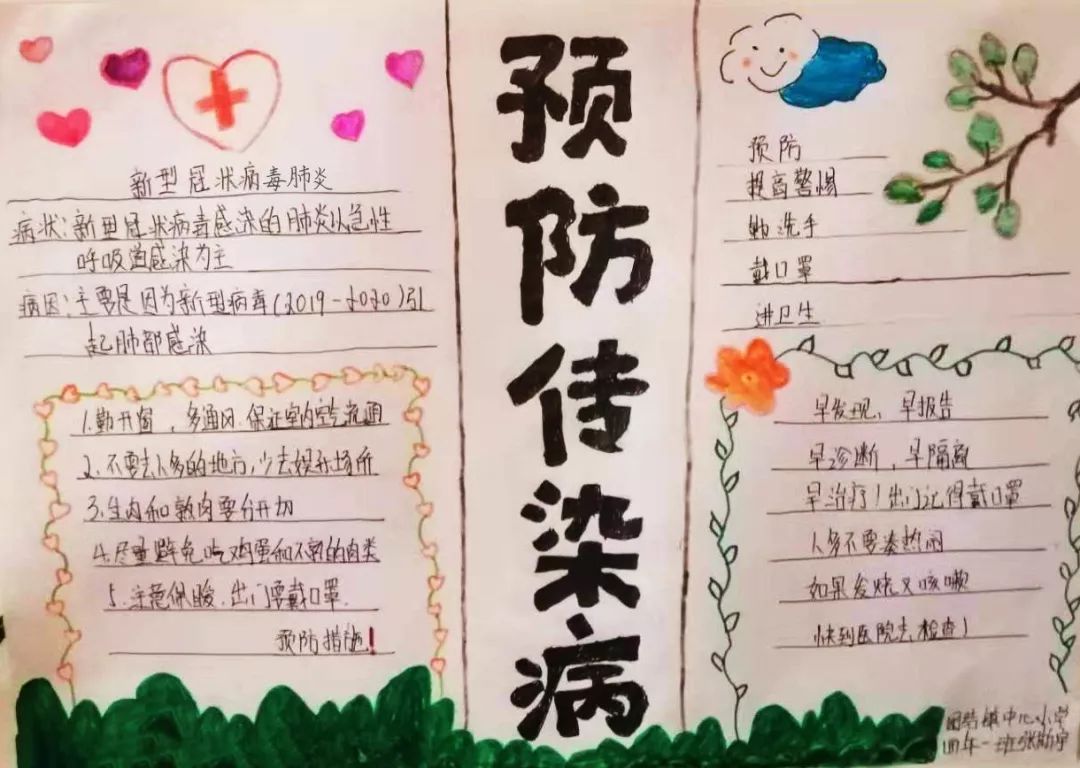 新型冠状病毒肺炎
病状:新型冠状病毒感染的肺炎以急性
呼吸道感染为主
病因:主要是因为新型病毒(2019-2020)引
起肺部感染
1.勤开窗,多通风.保证室内空气流通
2.不要去人多的地方,少去娱乐场所
3.生肉和熟肉要分开切
4.尽量避免吃鸡蛋和不熟的肉类
5.注意保暖.出门要戴口罩.
预防措施!
预防传染病
预防
提高警惕
勤洗手
戴口罩
讲卫生
早发现、早报告
早诊断,早隔离
早治疗!出门记得戴口罩
人多不要凑热闹
如果发烧又咳嗽
快到医院去检查!
团结镇中心小学
四年一班张斯宇